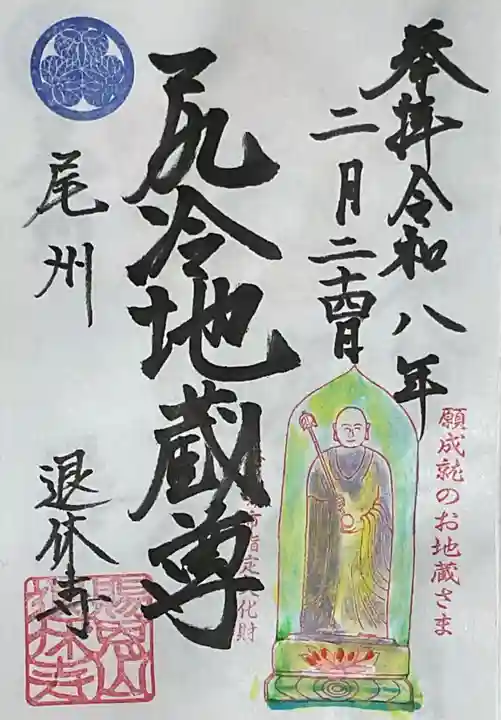 奉拝令和八年
二月二十四日
願成就のお地蔵さま
尻冷地蔵尊
指定文化財
尾州
退休寺
賜恩山
退休寺